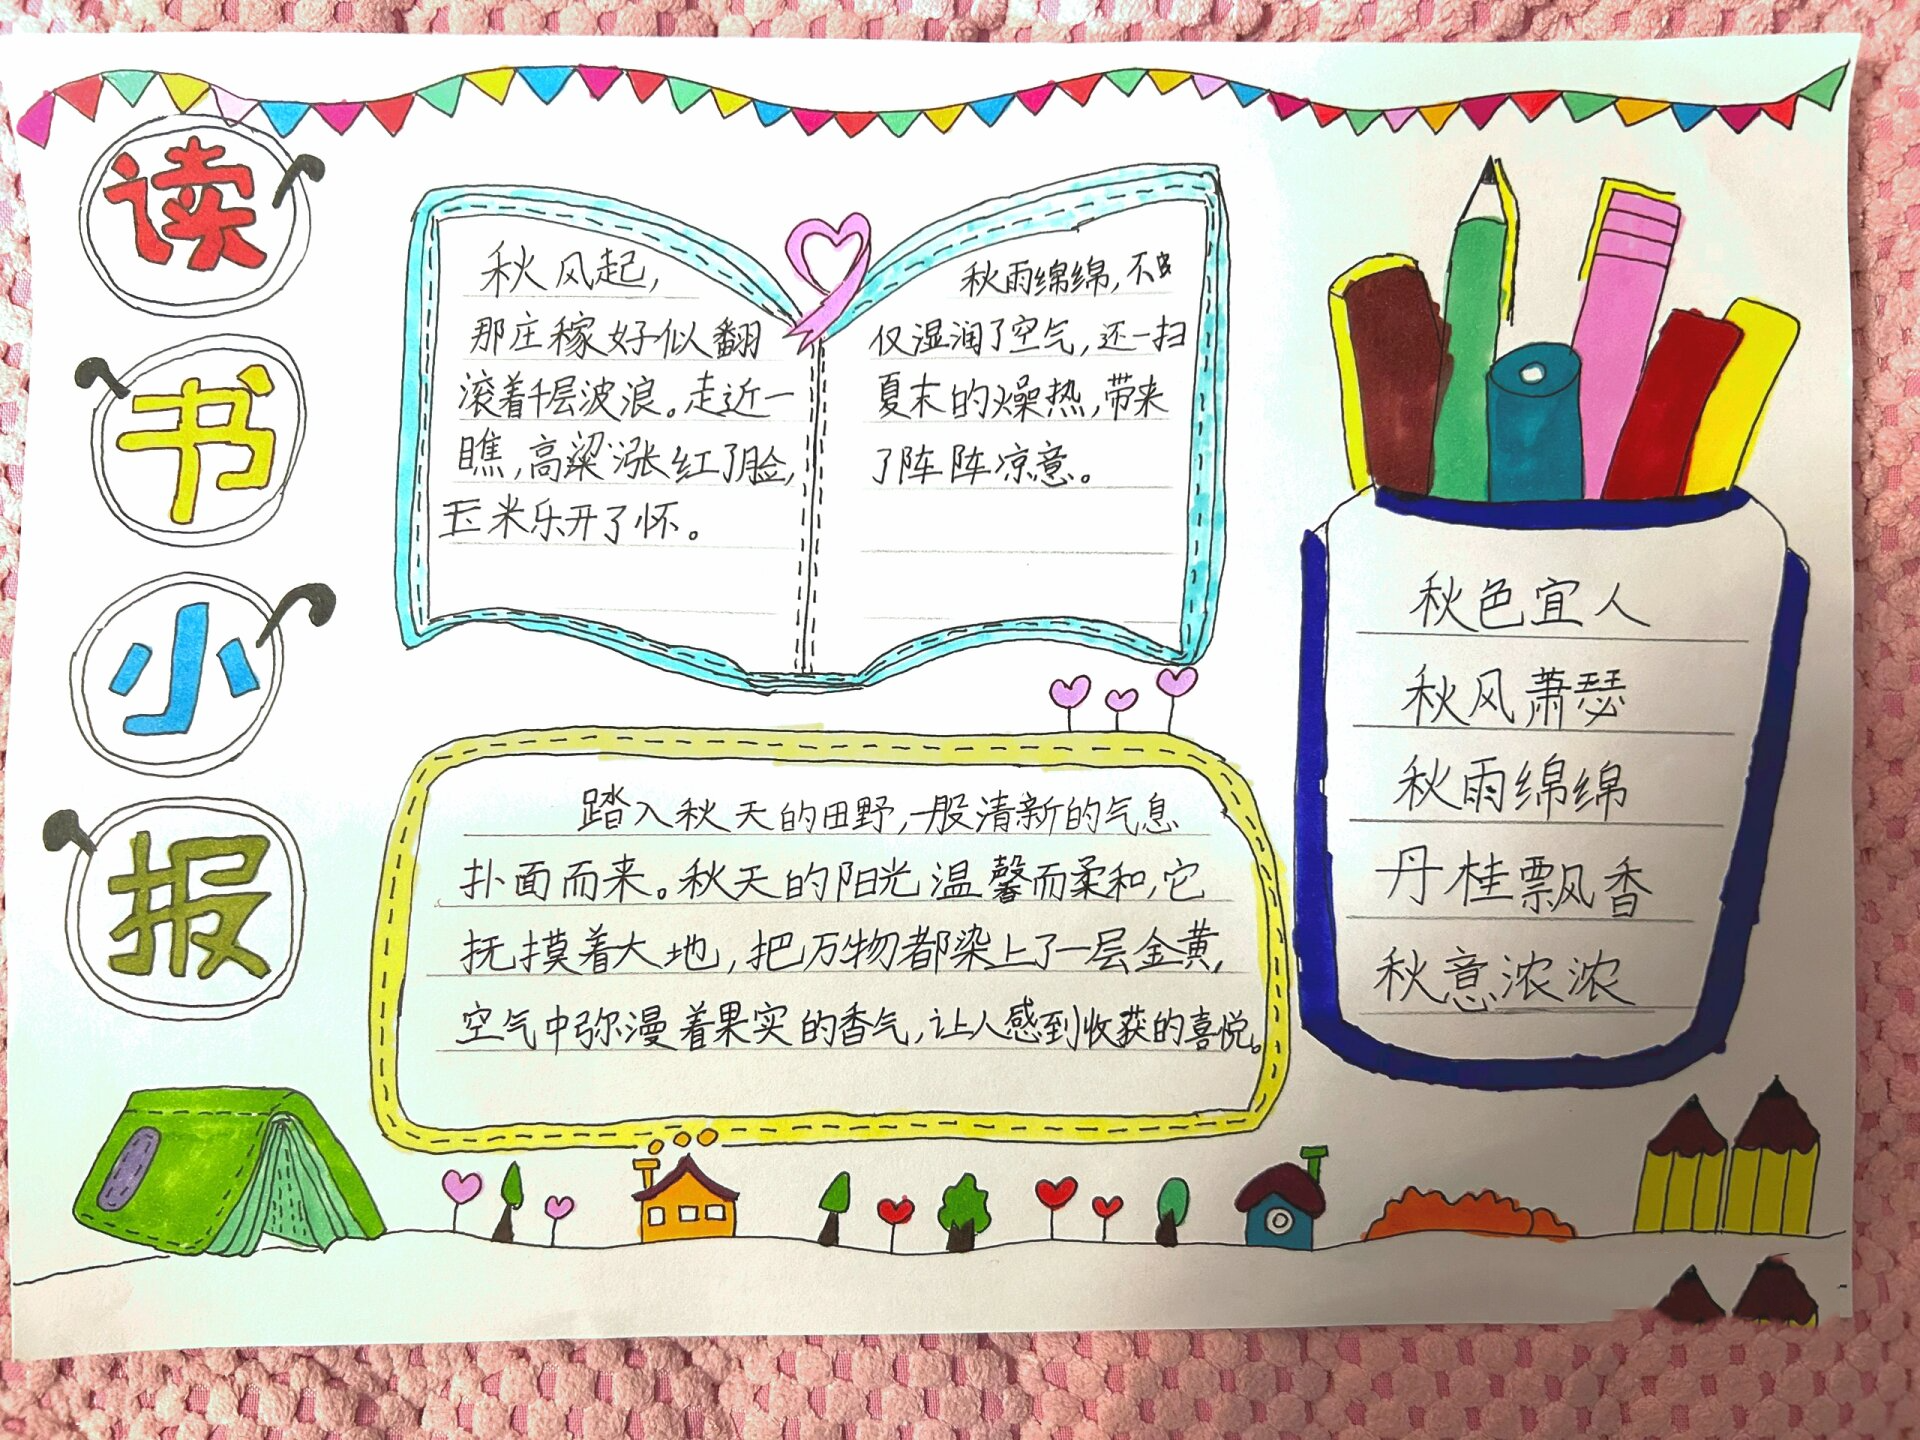 读
书
小
报
秋风起，
那庄稼好似翻
滚着千层波浪。走近一
瞧，高粱涨红了脸，
玉米乐开了怀。
秋雨绵绵，不
仅湿润了空气，还一扫
夏末的燥热，带来
了阵阵凉意。
踏入秋天的田野，一股清新的气息
扑面而来。秋天的阳光温馨而柔和，它
抚摸着大地，把万物都染上了一层金黄，
空气中弥漫着果实的香气，让人感到收获的喜悦。
秋色宜人
秋风萧瑟
秋雨绵绵
丹桂飘香
秋意浓浓